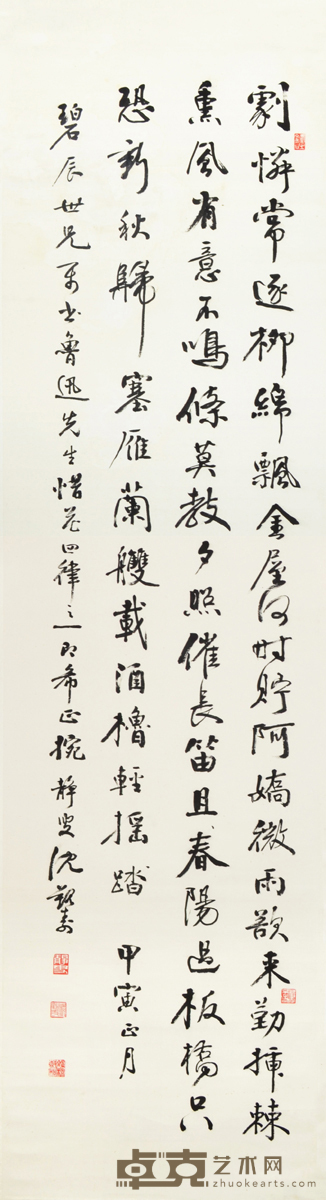 劇憐常逐柳綿飄金屋何时貯阿嬌微雨欲来勤插棘
熏風有意不鳴條莫教夕照催長笛且春陽過板橋只
恐新秋歸塞雁蘭艭載酒櫓輕摇踏 甲寅正月
碧辰世兄属书魯迅先生惜花四律之一即希正捥 静叟沈覲壽
卓克艺术网
www.zhuokearts.com